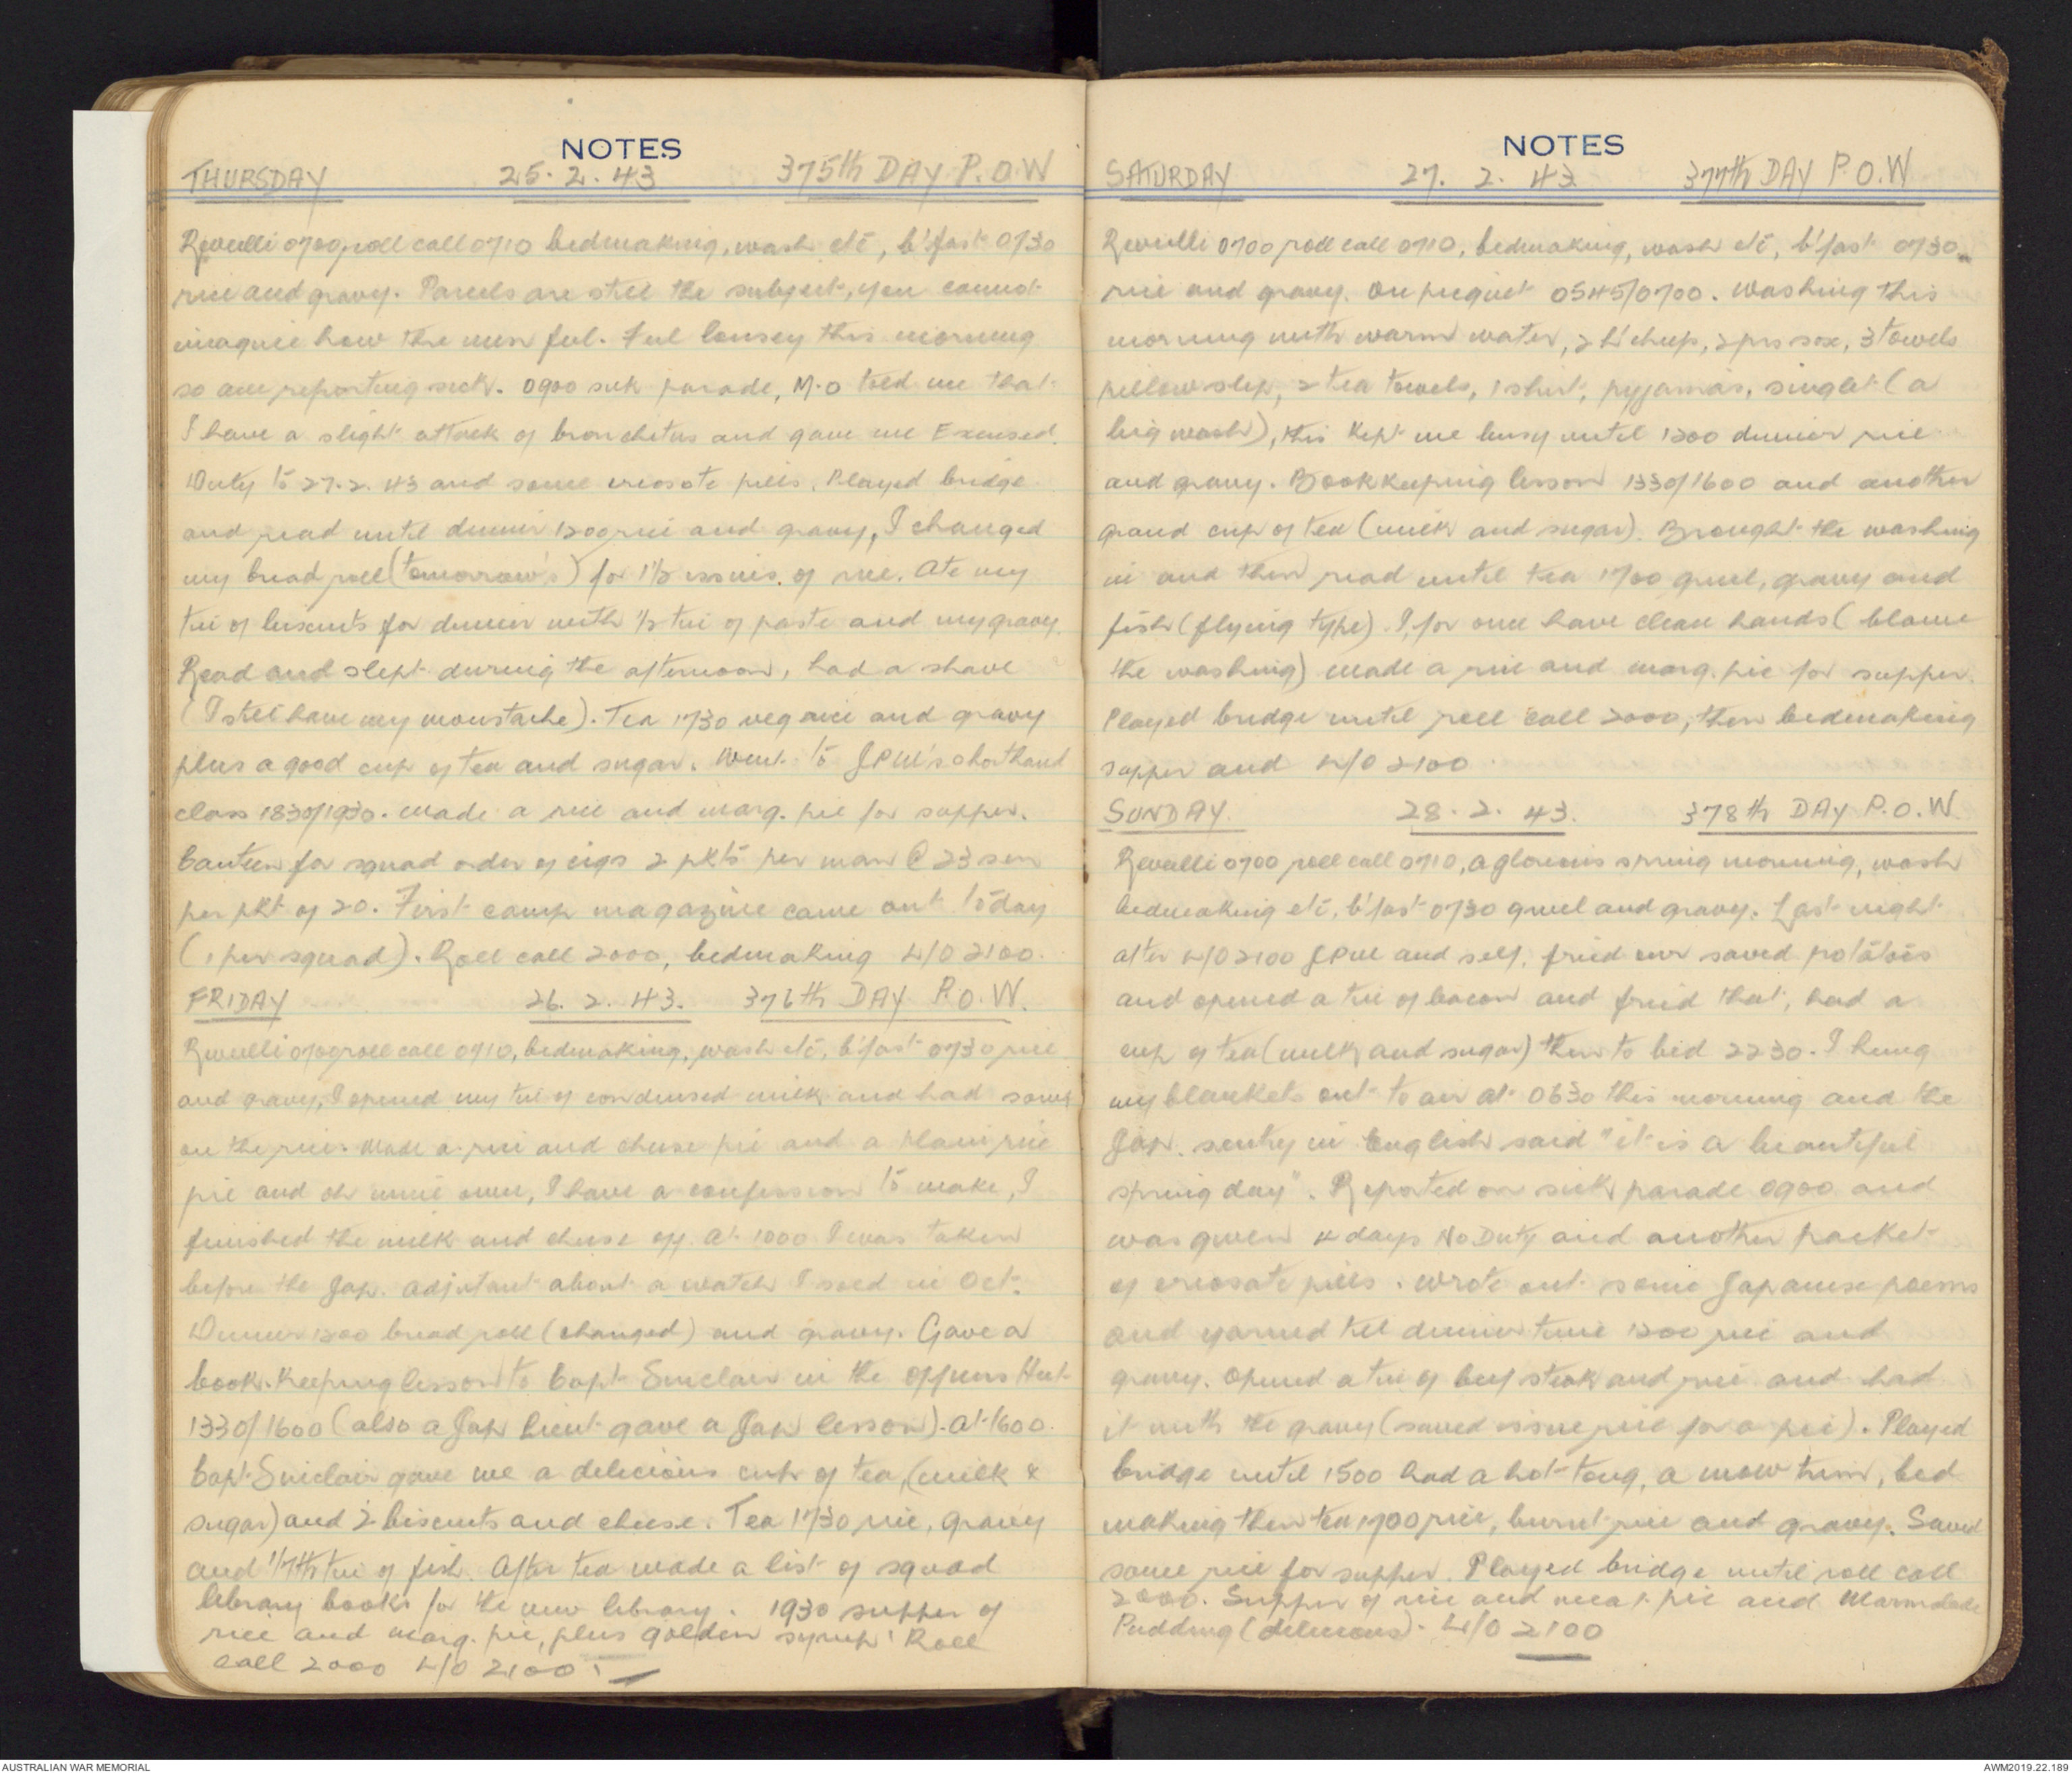 NOTES
THURSDAY 25.2.43 375th DAY P.O.W
Reveilli 0700, roll call 0710 bedmaking, wash etc, b'fast 0730
rice and gravy. Parcels are still the subject, you cannot
imagine how the men feel. Feel lousey this morning
so am reporting sick. 0900 sick parade, M.O told me that
I have a slight attack of bronchitus and gave me Excused
Duty to 27.2.43 and some creosote pills. Played bridge
and read until dinner 1200 rice and gravy, I changed
my bread roll (tomorrow's) for 1½ issues of rice. Ate my
tin of biscuits for dinner with ½ tin of paste and my gravy.
Read and slept during the afternoon, had a shave
(I still have my moustache). Tea 1730 veg rice and gravy
plus a good cup of tea and sugar. Went to shorthand
class 1830/1930. made a rice and marg. pie for supper.
Canteen for squad order of cigs 2 pkts per man @ 23 sen
per pkt of 20. First camp magazine came out today
(1 per squad). Roll call 2000, bedmaking L/O 2100.
FRIDAY 26.2.43. 376th DAY P.O.W.
Reveilli 0700 roll call 0710, bedmaking, wash etc, b'fast 0730 rice
and gravy, I opened my tin of condensed milk and had some
on the rice. Made a rice and cheese pie and a plain rice
pie and oh mine own, I have a confession to make, I
finished the milk and cheese off. At 1000 I was taken
before the Jap. adjutant about a watch I sold in Oct.
Dinner 1200 bread roll (changed) and gravy. Gave a
book-keeping lesson to Capt Sinclair in the officers Hut
1330/1600 (also a Jap Lieut gave a Jap lesson). At 1600
Capt. Sinclair gave me a delicious cup of tea, (milk &
sugar) and 2 biscuits and cheese. Tea 1730 rice, gravy
and 1/7th tin of fish. After tea made a list of squad
library books for the new library. 1930 supper of
rice and marg. pie, plus golden syrup! Roll
call 2000 L/O 2100.
NOTES
SATURDAY 27.2.43 377th DAY P.O.W
Reveilli 0700 roll call 0710, bedmaking, wash etc, b'fast 0730
rice and gravy. On picquet 0545/0700. Washing this
morning with warm water, 2 h'chiefs, 2 prs sox, 3 towels
pillowslip, 2 tea towels, 1 shirt, pyjamas, singlet (a
big wash), this kept me busy until 1200 dinner rice
and gravy. Bookkeeping lesson 1330/1600 and another
grand cup of tea (milk and sugar). Brought the washing
in and then read until tea 1700 gruel, gravy and
fish (flying type). I, for once have clean hands (blame
the washing) made a rice and marg. pie for supper.
Played bridge until roll call 2000, then bedmaking
supper and L/O 2100.
SUNDAY. 28.2.43. 378th DAY P.O.W.
Reveilli 0700 roll call 0710, a glorious spring morning, wash
bedmaking etc, b'fast 0730 gruel and gravy. Last night
after L/O 2100 and self, fried our saved potatoes
and opened a tin of bacon and fried that, had a
cup of tea (milk and sugar) then to bed 2230. I hung
my blankets out to air at 0630 this morning and the
Jap. sentry in English said "it is a beautiful
spring day". Reported on sick parade 0900 and
was given 4 days No Duty and another packet
of creosate pills. Wrote out some Japanese poems
and yarned till dinner time 1200 rice and
gravy. Opened a tin of beef steak and rice and had
it with the gravy (saved issue rice for a pie). Played
bridge until 1500 had a hot tong, a mow trim, bed
making then tea 1700 rice, burnt rice and gravy. Saved
some rice for supper. Played bridge until roll call
2000. Supper of rice and meat pie and Marmalade
Pudding (delicious). L/O 2100
AUSTRALIAN WAR MEMORIAL
AWM2019.22.189